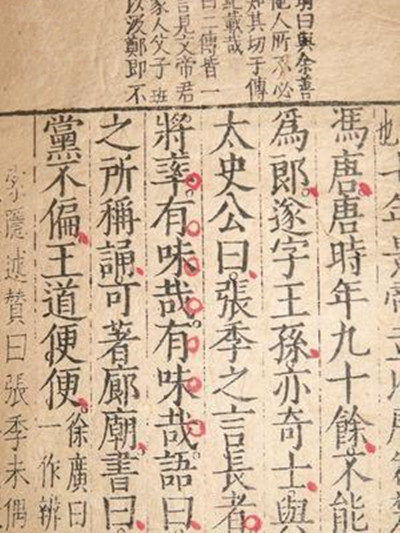 曰與余善
他人所不必
知其切于傳
載哉
曰二傳皆一
言見文帝君
家人父子班
以汲鄭即不
也
馮唐唐時年九十餘不能
為郎遂字王孫亦奇士與
太史公曰張季之言長者
將率有味哉有味哉語曰
之所稱誦可著廊廟書曰
黨不偏王道便便徐廣曰
一作辨
述贊曰張季未偶